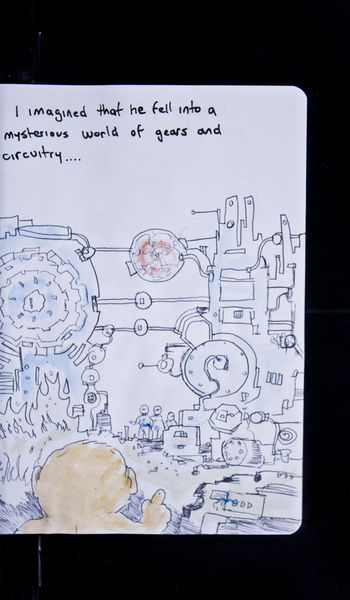 I imagined that he fell into a
mysterious world of gears and
circuitry....